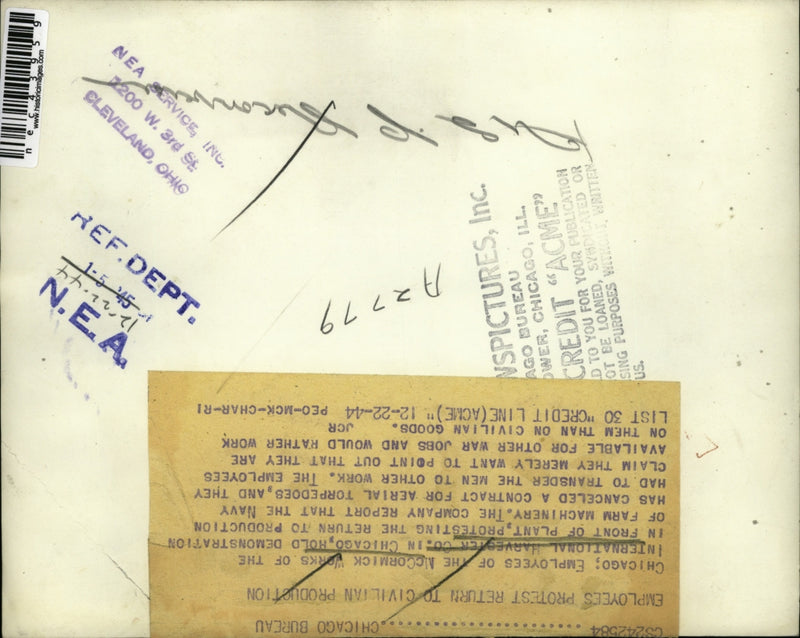 nec43959
www.historicimages.com
NEA SERVICE, INC.
1200 W. 3rd St.
CLEVELAND, OHIO
REF. DEPT.
1-5-'45
12-22-44
N.E.A.
A2779
WSPICTURES, Inc.
AGO BUREAU
OWER, CHICAGO, ILL.
CREDIT “ACME”
D TO YOU FOR YOUR PUBLICATION
OT BE LOANED, SYNDICATED OR
SING PURPOSES WITHOUT WRITTEN
US.
CS242584 CHICAGO BUREAU
EMPLOYEES PROTEST RETURN TO CIVILIAN PRODUCTION
CHICAGO; EMPLOYEES OF THE MCCORMICK WORKS OF THE
INTERNATIONAL HARVESTER CO. IN CHICAGO, HOLD DEMONSTRATION
IN FRONT OF PLANT, PROTESTING THE RETURN TO PRODUCTION
OF FARM MACHINERY. THE COMPANY REPORT THAT THE NAVY
HAS CANCELED A CONTRACT FOR AERIAL TORPEDOES, AND THEY
HAD TO TRANSDER THE MEN TO OTHER WORK. THE EMPLOYEES
CLAIM THEY MERELY WANT TO POINT OUT THAT THEY ARE
AVAILABLE FOR OTHER WAR JOBS AND WOULD RATHER WORK
ON THEM THAN ON CIVILIAN GOODS. JCR
LIST 30 "CREDIT LINE (ACME)" 12-22-44 PEO-MCK-CHAR-RI